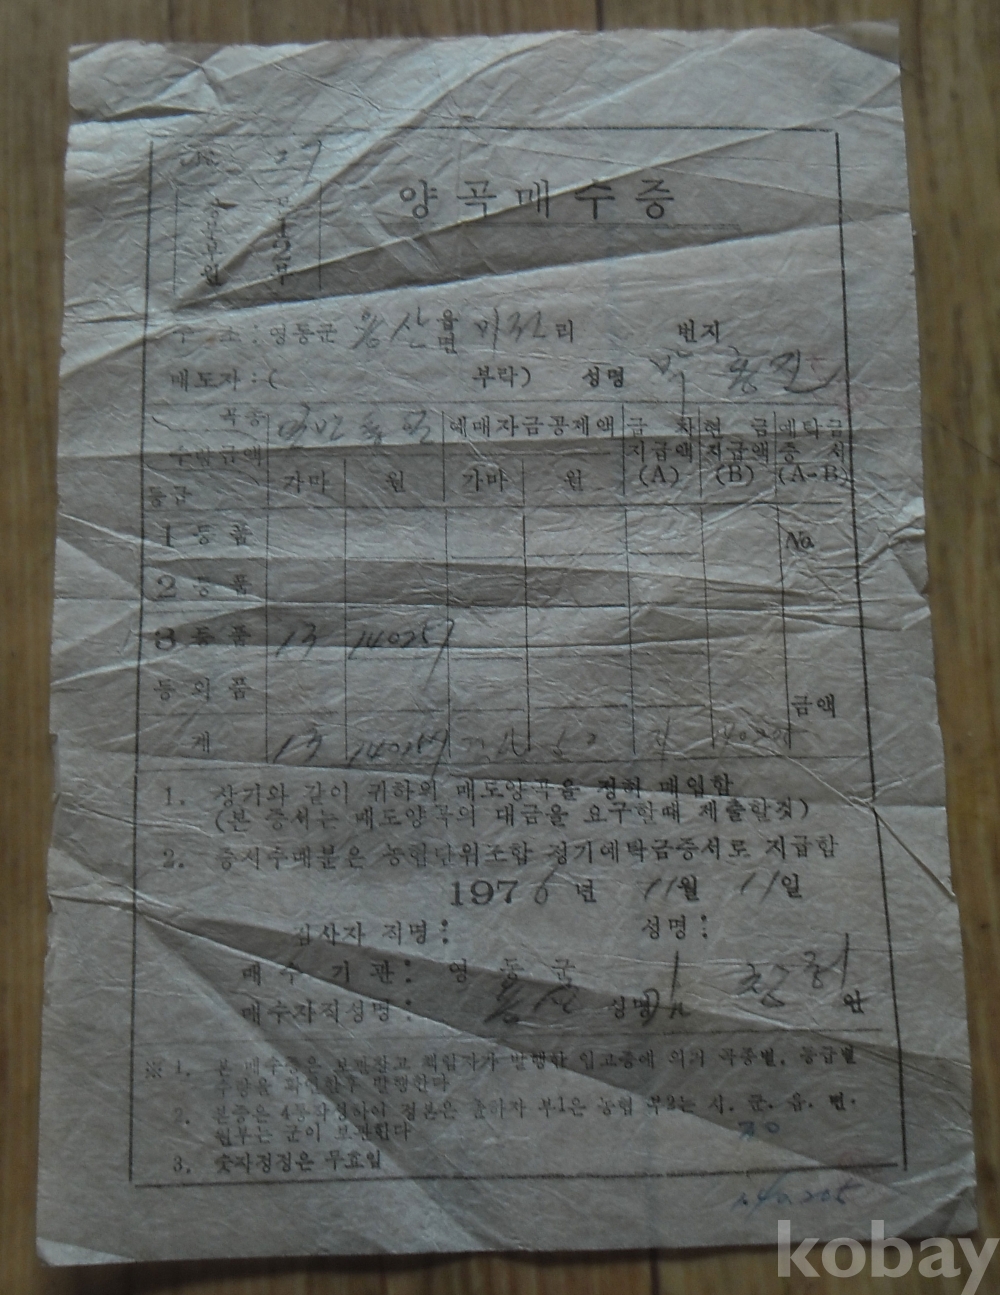 양곡매수증
주 소 : 영동군 용산 읍면 리 번지
매도자 : ( 부락) 성명 박
곡종 예매자금공제액 금 차 현 금 예탁금
수량금액 지급액 지급액 증 서
등급 가마 원 가마 원 (A) (B) (A-B)
1 등 품 No
2 등 품
3 등 품 13 140257
등 외 품 금액
계 13
1. 상기와 같이 귀하의 매도양곡을 정히 매입함
(본 증서는 매도양곡의 대금을 요구할때 제출할것)
2. 증지수매분은 농협단위조합 정기예탁금증서로 지급함
1976년 11월 11일
검사자 직명 : 성명 :
매 수 기 관 : 영 동 군
매수자직성명 : 용산 성명 김 인
※ 1. 본 매수증은 보관창고 책임자가 발행한 입고증에 의거 곡종별. 등급별
수량을 확인한후 발행한다
2. 본증은 4통작성하여 정본은 출하자 부1은 농협 부2는 시. 군. 읍. 면.
원부는 군이 보관한다
3. 숫자정정은 무효임
140.205
kobay